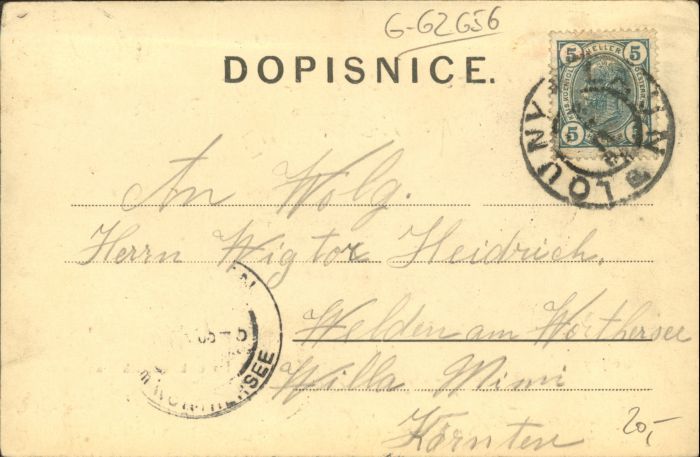 G-G2G56
DOPISNICE.
5 HELLER 5
5
LOUNY
An Wolg.
Herrn Wigtor Heidrich.
Welden am Wörthersee
Willa Mimi
Kärnten
05-5
WÖRTHERSEE
20,-